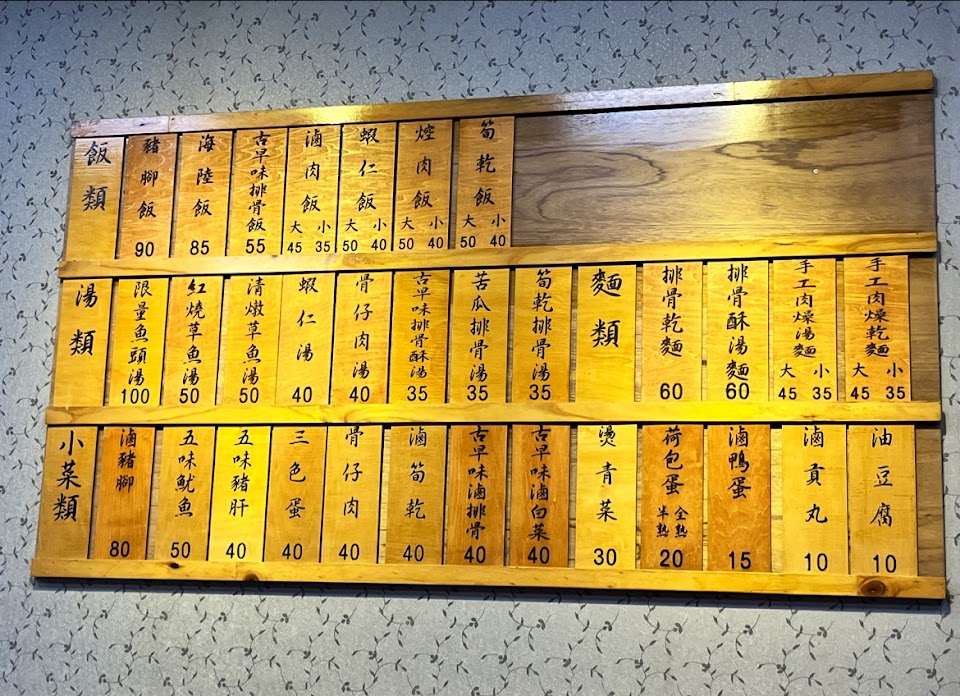 飯類
豬腳飯 90
海陸飯 85
古早味排骨飯 55
滷肉飯 大 小 45 35
蝦仁飯 大 小 50 40
焢肉飯 大 小 50 40
筍乾飯 大 小 50 40
湯類
限量魚頭湯 100
紅燒草魚湯 50
清燉草魚湯 50
蝦仁湯 40
骨仔肉湯 40
古早味排骨酥湯 35
苦瓜排骨湯 35
筍乾排骨湯 35
麵類
排骨乾麵 60
排骨酥湯麵 60
手工肉燥湯麵 大 小 45 35
手工肉燥乾麵 大 小 45 35
小菜類
滷豬腳 80
五味魷魚 50
五味豬肝 40
三色蛋 40
骨仔肉 40
滷筍乾 40
古早味滷排骨 40
古早味滷白菜 40
燙青菜 30
荷包蛋 半熟 全熟 20
滷鴨蛋 15
滷貢丸 10
油豆腐 10